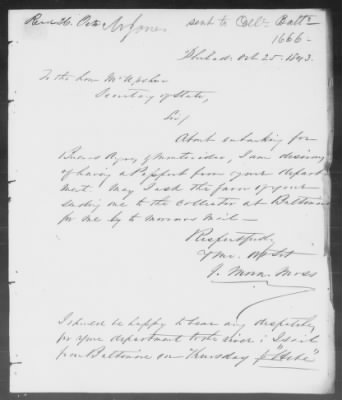 Recd 26. Oct. Mr Jones sent to Coll. Balto
1666 -
Philad: Oct 25. 1843.
To the Hon Mr Upshur
Secretary of State,
Sir/
About embarking for
Buenos Ayres & Montevideo, I am desirous
of having a Passport from your depart
ment. May I ask the favor of your
sending one to the collector at Baltimore
for me by to morrows Mail -
Respectfully
Yr mo. ob Svt
J. Mora Moss
I should be happy to bear any despatches
for your department to the river; I sail
from Baltimore on Thursday p "Hebe"